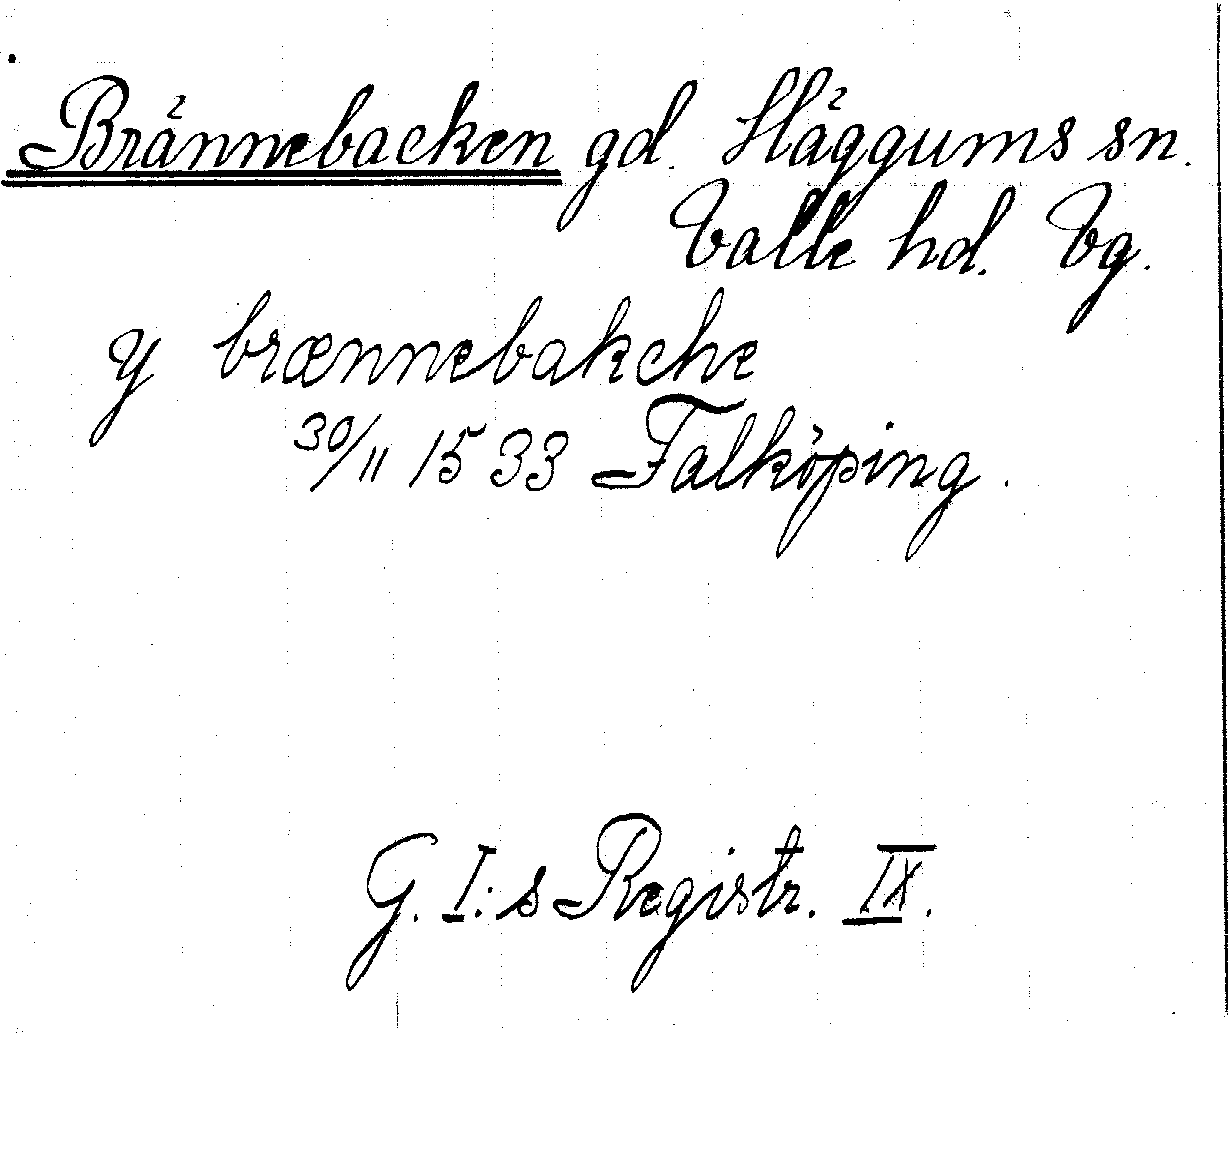 Brännebacken gd. Häggums sn.
Valle hd. Vg.
y brænnebakche
30/11 1533 Falköping.
G. I:s Registr. IX.